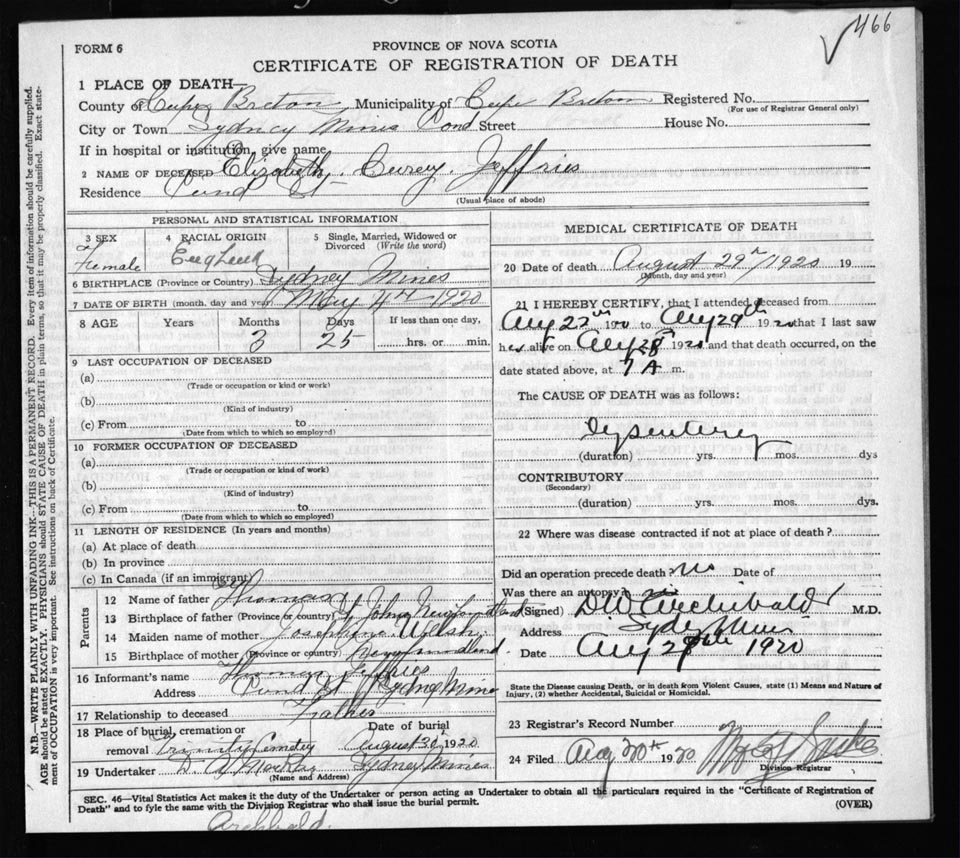 466
FORM 6
PROVINCE OF NOVA SCOTIA
CERTIFICATE OF REGISTRATION OF DEATH
1 PLACE OF DEATH—
County of Cape Breton Municipality of Cape Breton Registered No.
(For use of Registrar General only)
City or Town Sydney Mines Pond Street House No.
If in hospital or institution, give name
2 NAME OF DECEASED Elizabeth Jeffries
Residence Pond St
(Usual place of abode)
PERSONAL AND STATISTICAL INFORMATION
3 SEX
Female
4 RACIAL ORIGIN
English
5 Single, Married, Widowed or Divorced (Write the word)
6 BIRTHPLACE (Province or Country) Sydney Mines
7 DATE OF BIRTH (month, day and year) May 4th 1920
8 AGE Years Months Days If less than one day,
3 25 hrs. or min.
9 LAST OCCUPATION OF DECEASED
(a)
(Trade or occupation or kind or work)
(b)
(Kind of industry)
(c) From to
(Date from which to which so employed)
10 FORMER OCCUPATION OF DECEASED
(a)
(Trade or occupation or kind of work)
(b)
(Kind of industry)
(c) From to
(Date from which to which so employed)
11 LENGTH OF RESIDENCE (In years and months)
(a) At place of death
(b) In province
(c) In Canada (if an immigrant)
Parents
12 Name of father Thomas
13 Birthplace of father (Province or country) St John Newfoundland
14 Maiden name of mother Josephine Welsh
15 Birthplace of mother (Province or country) Newfoundland.
16 Informant's name Thomas Jeffries
Address Pond St Sydney Mines
17 Relationship to deceased Father
18 Place of burial, cremation or removal Trinity Cemetry
Date of burial August 30th 1920
19 Undertaker Sydney Mines
(Name and Address)
MEDICAL CERTIFICATE OF DEATH
20 Date of death August 29th 1920 19
(Month, day and year)
21 I HEREBY CERTIFY, that I attended deceased from
Aug 22nd 1920 to Aug 29th 1920 that I last saw
her alive on Aug 28 1920 and that death occurred, on the
date stated above, at 7 A m.
The CAUSE OF DEATH was as follows:
Dysentery
(duration) yrs. mos. dys
CONTRIBUTORY
(Secondary)
(duration) yrs. mos. dys.
22 Where was disease contracted if not at place of death?
Did an operation precede death? No Date of
Was there an autopsy?
(Signed) DW Archibald M.D.
Address Syd Mines
Date Aug 29th 1920
State the Disease causing Death, or in death from Violent Causes, state (1) Means and Nature of
Injury, (2) whether Accidental, Suicidal or Homicidal.
23 Registrar's Record Number
24 Filed Aug 30th 1920
Division Registrar
SEC. 46—Vital Statistics Act makes it the duty of the Undertaker or person acting as Undertaker to obtain all the particulars required in the "Certificate of Registration of
Death" and to fyle the same with the Division Registrar who shall issue the burial permit.
(OVER)
Archbald.
N.B.—WRITE PLAINLY WITH UNFADING INK—THIS IS A PERMANENT RECORD. Every item of information should be carefully supplied.
AGE should be stated EXACTLY. PHYSICIANS should STATE CAUSE OF DEATH in plain terms, so that it may be properly classified. Exact state-
ment of OCCUPATION is very important. See instructions on back of Certificate.